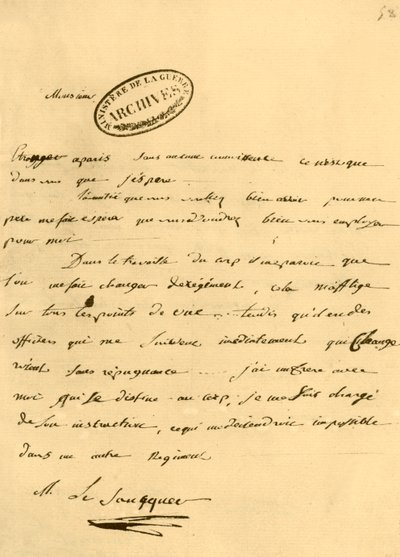 58
MINISTÈRE DE LA GUERRE
ARCHIVES
Monsieur
Etranger a paris sans aucune ce nest que
dans vous que j'espere
l'amitié que vous bien avoir pour mon
pere me fait esperer que vous bien vous employer
pour moi
Dans le travaille du corp il me paroit que
l'on me fait changer de régiment, cela m'afflige
sur tous les points de vue tendis qu'il en des
officiers qui me suivent imediatement que Change
roient sans repugnance j'ai un frere avec
moi qui se destine au corp, je me suis chargé
de son instruction, ce qui me deviendroit impossible
dans un autre Regiment
M. Le